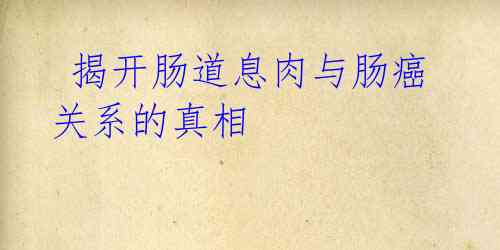 揭开肠道息肉与肠癌
关系的真相